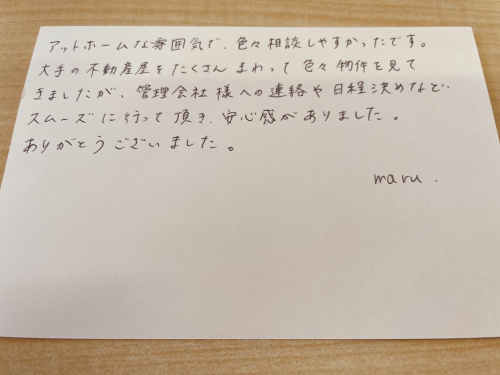 アットホームな雰囲気で、色々相談しやすかったです。
大手の不動産屋をたくさんまわって色々物件を見て
きましたが、管理会社様への連絡や日程決めなど、
スムーズに行って頂き、安心感がありました。
ありがとうございました。
maru.